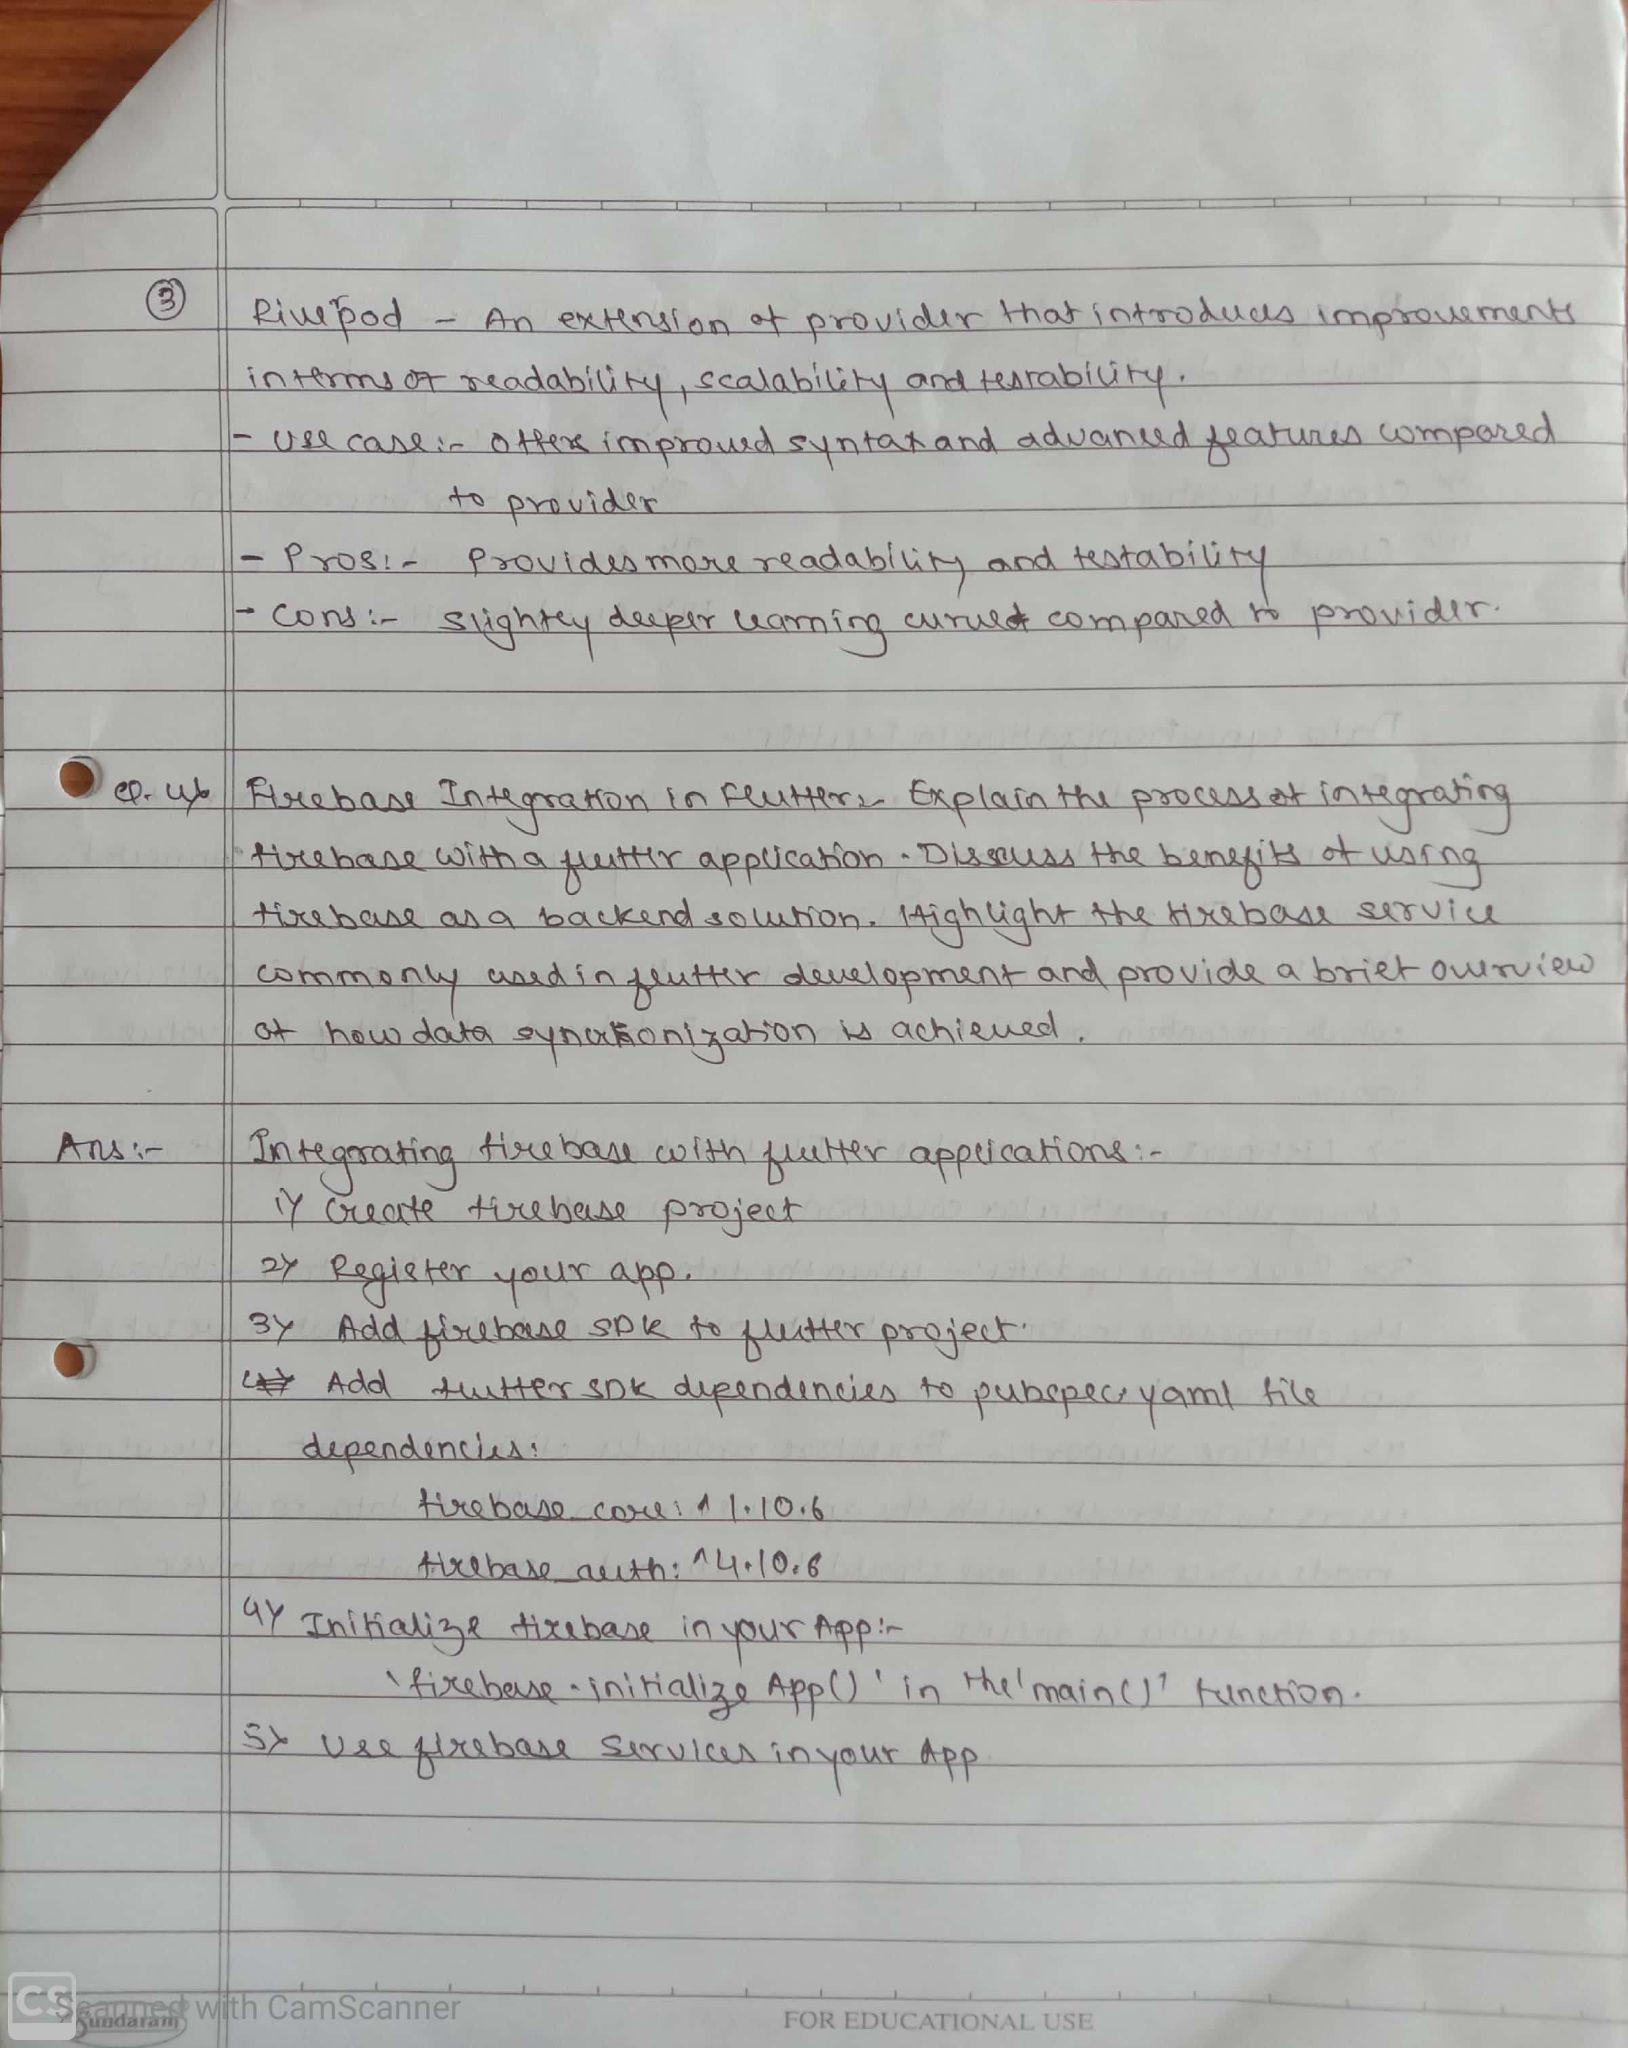 ③ Riverpod - An extension of provider that introduces improvements
in terms of readability, scalability and testability.
- Use case :- Offers improved syntax and advanced features compared
to provider
- Pros :- Provides more readability and testability
- Cons :- slightly deeper learning curve compared to provider.
Q. 4) Firebase Integration in Flutter :- Explain the process of integrating
firebase with a flutter application. Discuss the benefits of using
firebase as a backend solution. Highlight the firebase service
commonly used in flutter development and provide a brief overview
of how data synchronization is achieved.
Ans :- Integrating firebase with flutter applications :-
1) Create firebase project
2) Register your app.
3) Add firebase SDK to flutter project.
Add flutter SDK dependencies to pubspec.yaml file
dependencies:
firebase_core: ^1.10.6
firebase_auth: ^4.10.6
4) Initialize firebase in your App :-
'firebase.initialize App()' in the 'main()' function.
5) Use firebase services in your App
CS Scanned with CamScanner
Sundaram
FOR EDUCATIONAL USE